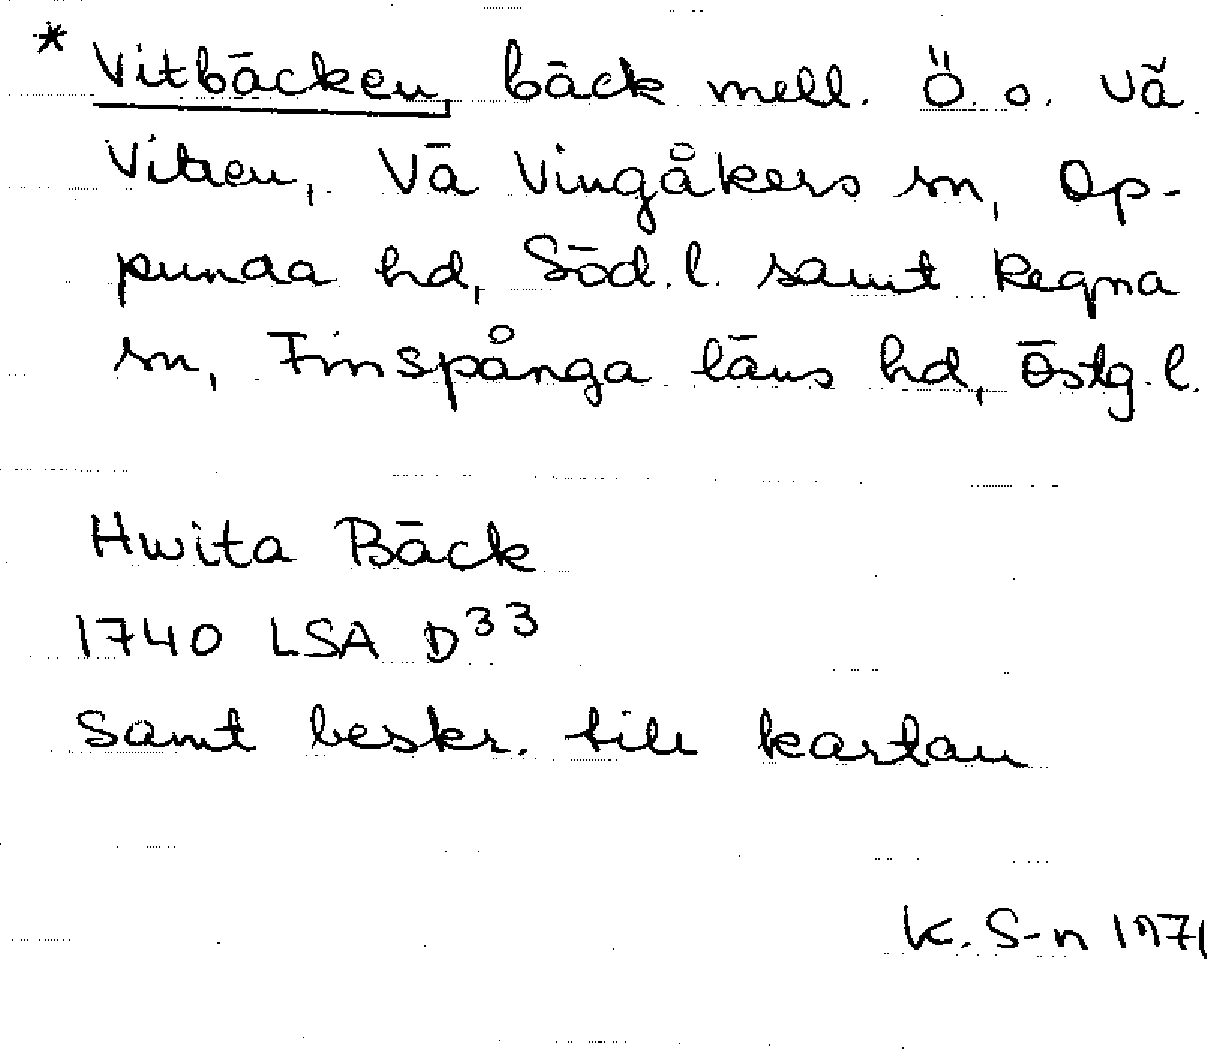 * Vitbäcken, bäck mell. Ö. o. Vä
Vitren, Vä Vingåkers sn, Op-
punda hd, Söd. l. samt Regna
sn, Finspånga läns hd, Östg. l.
Hwita Bäck
1740 LSA D33
Samt beskr. till kartan
K. S-n 1971